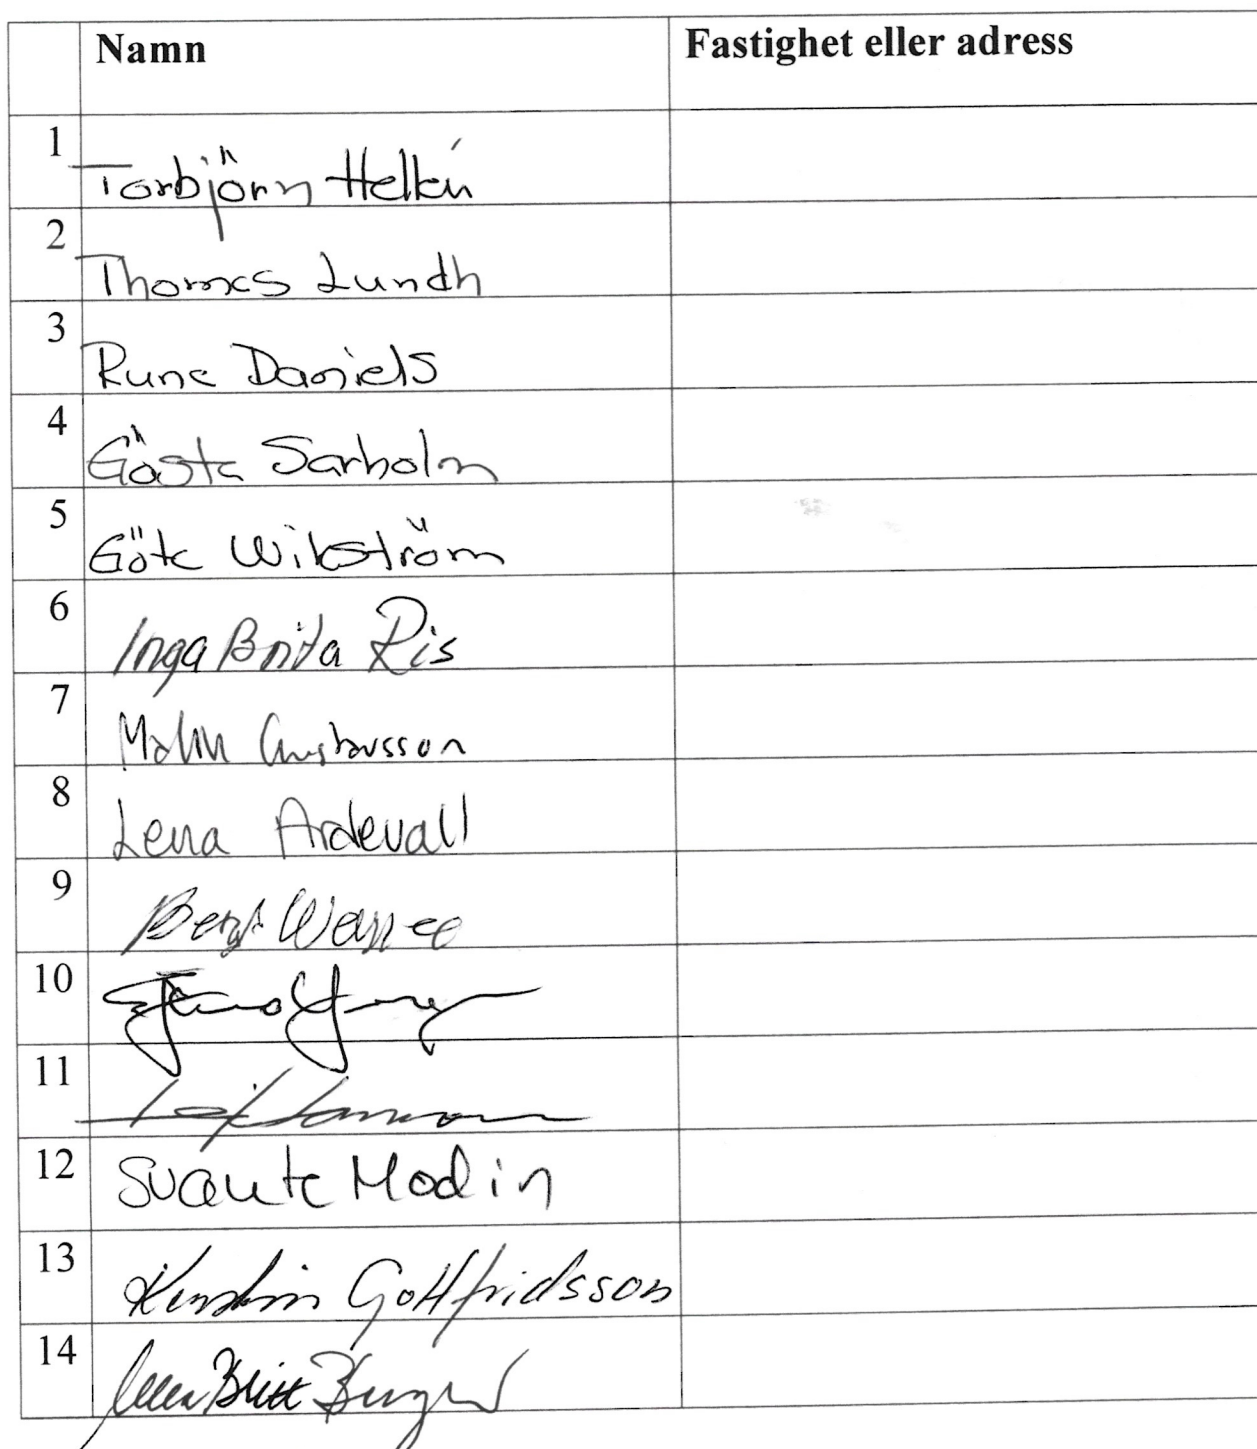 Namn Fastighet eller adress
1 Torbjörn Hellén
2 Thomas Lundh
3 Rune Daniels
4 Gösta Sarholm
5 Göte Wikström
6 Inga Brita Ris
7 Malin Gustavsson
8 Lena Ardevall
9 Bengt
10
11 Leif
12 Svante Modin
13 Kerstin Gottfridsson
14 Britt